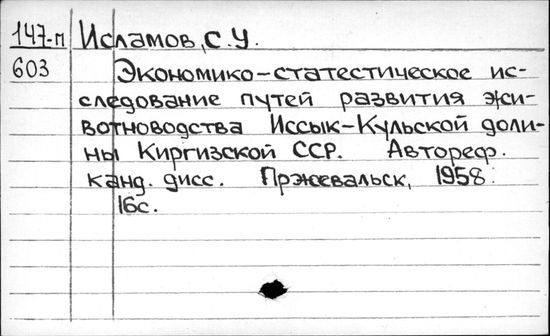 147-п Исламов, С. У.
603 Экономико-статестическое ис-
следование путей развития жи-
вотноводства Иссык-Кульской доли-
ны Киргизской ССР. Автореф.
канд. дисс. Пржевальск, 1958.
16с.